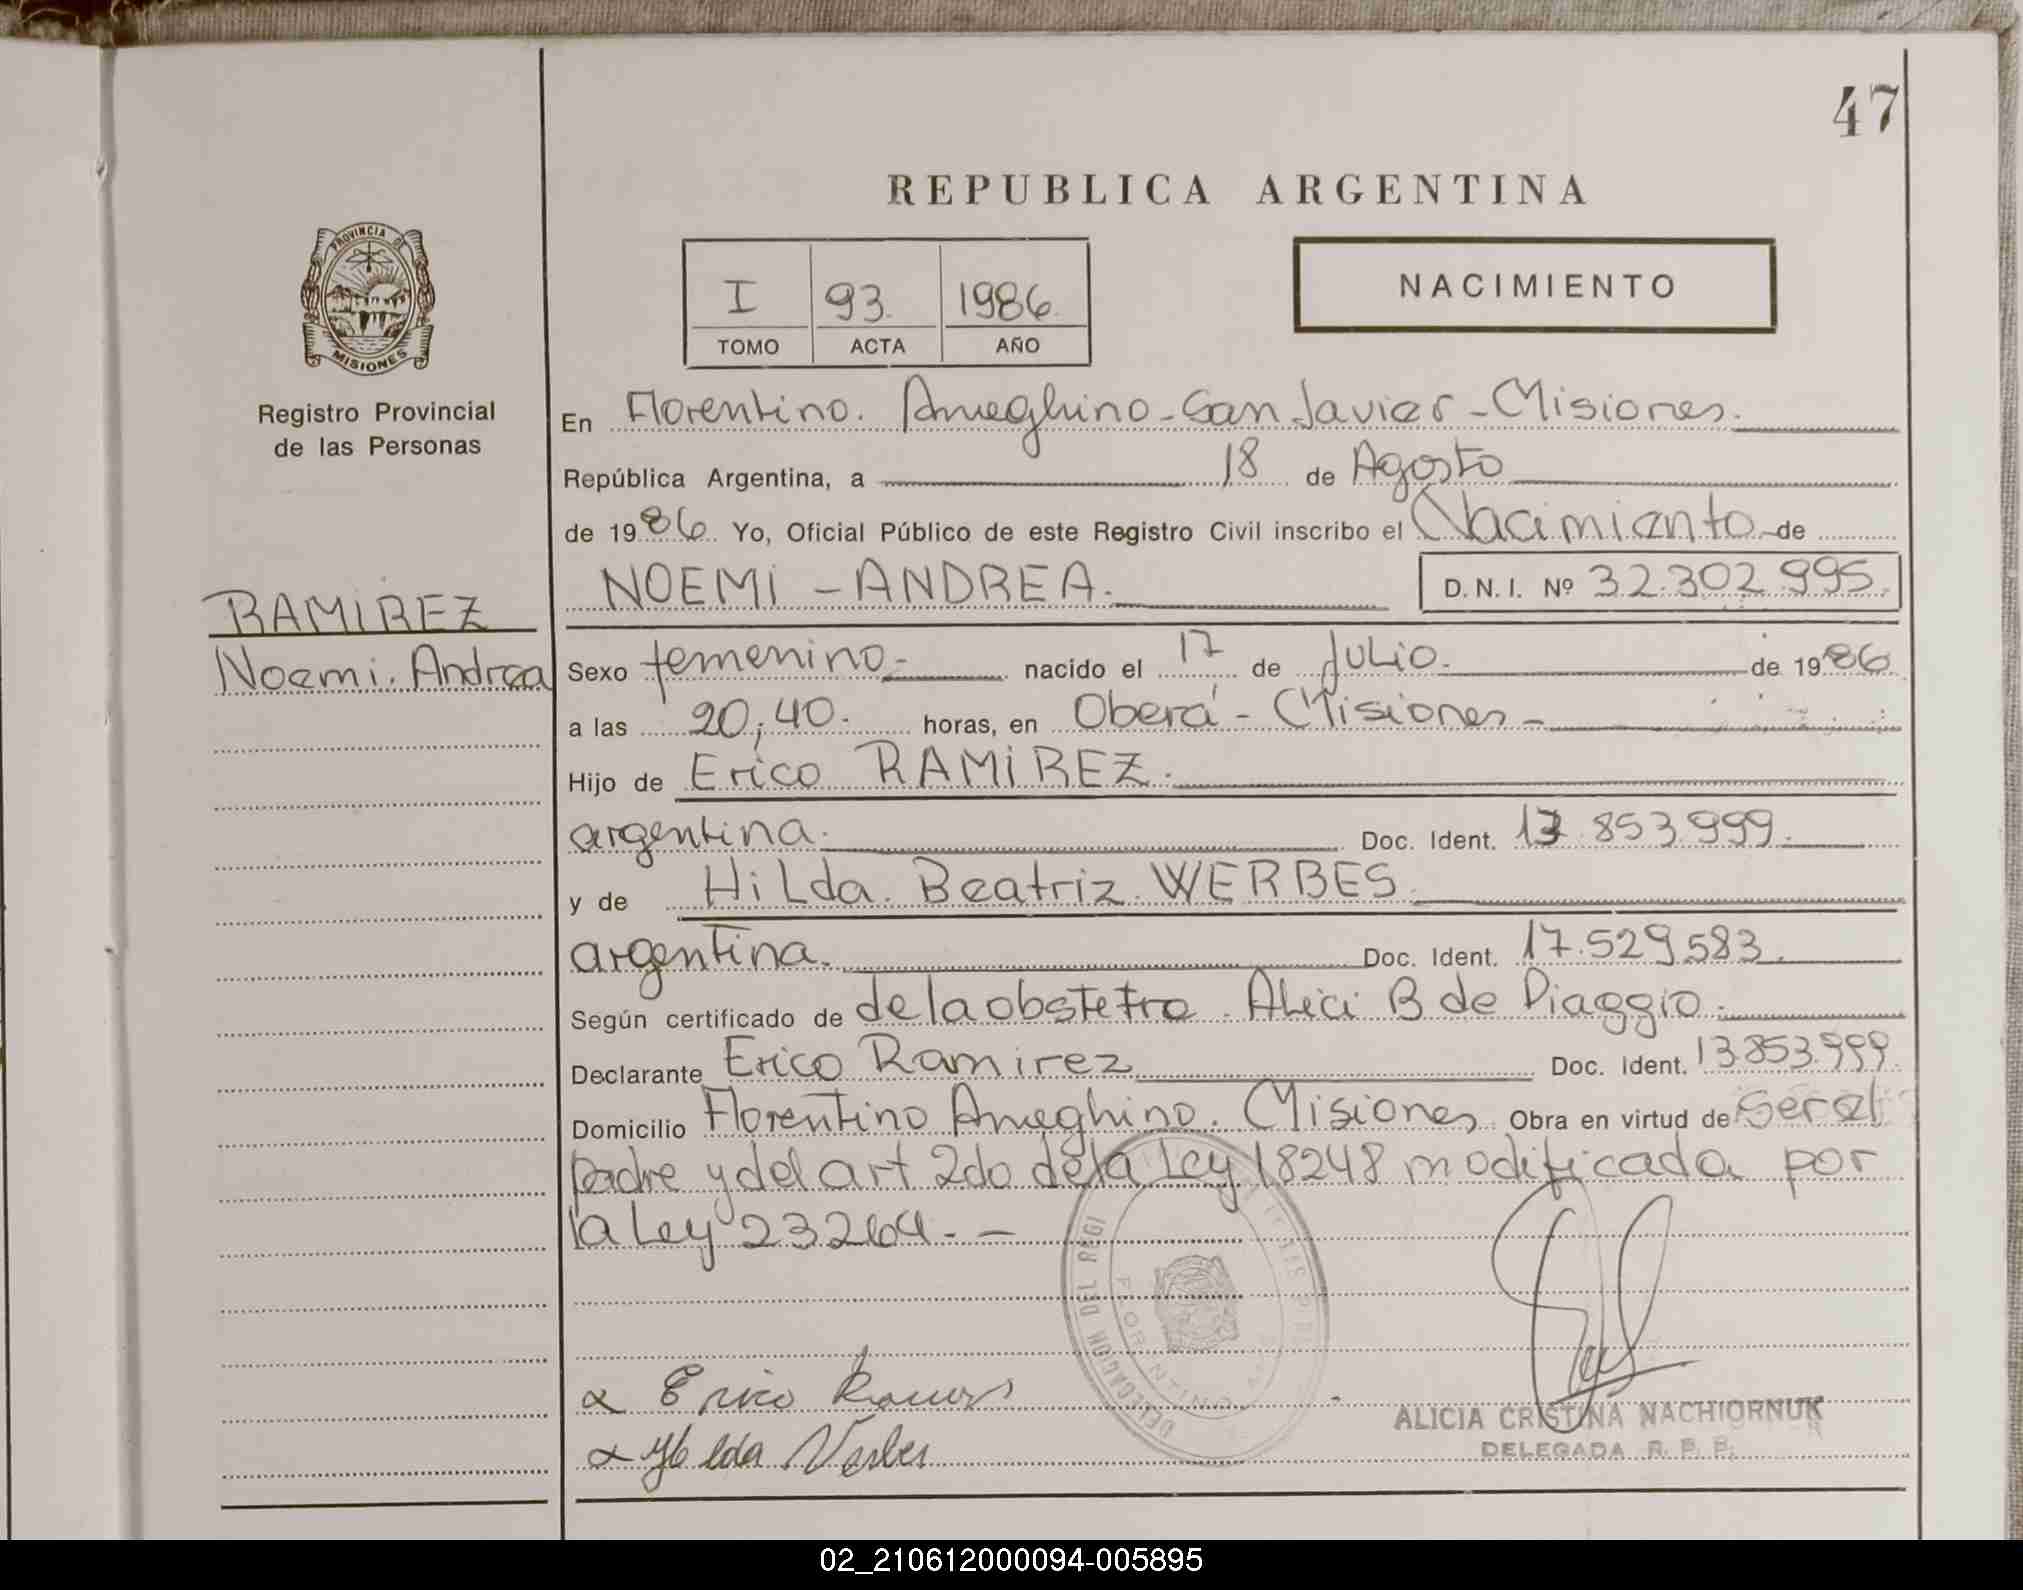 47
REPUBLICA ARGENTINA
PROVINCIA DE
MISIONES
Registro Provincial
de las Personas
I 93. 1986.
TOMO ACTA AÑO
NACIMIENTO
En Florentino. Ameghino - San Javier - Misiones.
República Argentina, a 18 de Agosto
de 1986. Yo, Oficial Público de este Registro Civil inscribo el Nacimiento de
RAMIREZ
Noemi. Andrea
NOEMI - ANDREA. D. N. I. Nº 32.302.995.
Sexo femenino - nacido el 17 de Julio. de 1986
a las 20,40. horas, en Oberá - Misiones -
Hijo de Erico RAMIREZ.
argentina. Doc. Ident. 13.853.999.
y de Hilda. Beatriz. WERBES.
argentina. Doc. Ident. 17.529.583.
Según certificado de de la obstetra. Alici B de Piaggio.
Declarante Erico Ramirez Doc. Ident. 13.853.999.
Domicilio Florentino Ameghino. Misiones Obra en virtud de Ser el
padre y del art 2do de la Ley 18248 modificada por
la Ley 23264. - -
DELEGACION DEL REGI
Erico
Hilda Verbes
ALICIA CRISTINA NACHIORNUK
DELEGADA R. P. P.
02_210612000094-005895